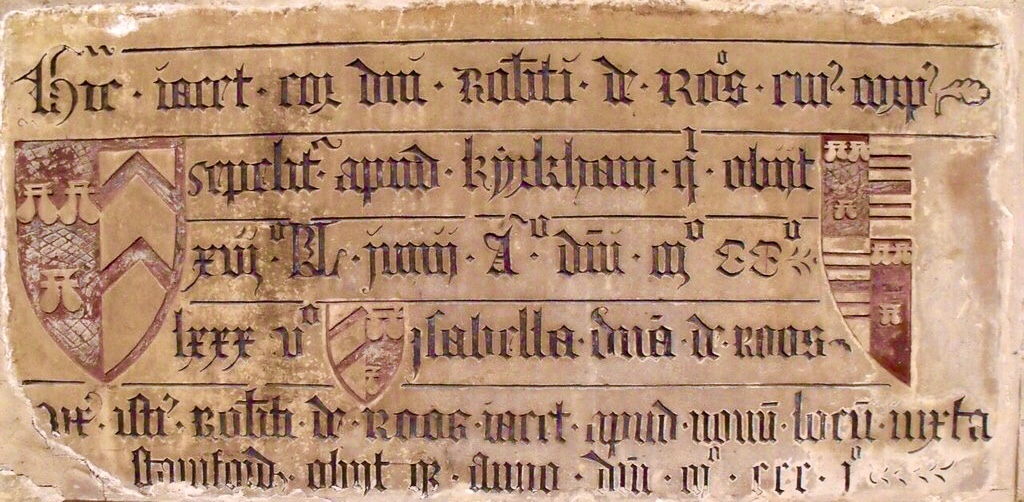 Hic · iacet · cor dñi · Robti · de · Roˢs · cui' · corp'
sepelit^r · apud · kyrkham · qⁱ · obijt
xvijº · kl · junij · Aº · dñi · mº CCº
lxxx vº ysabella · dña · de · roos
ux' · isti' · Robti · de · Roos · iacet · apud · novū · locū · iuxta
stanford · obijt q' · anno · dñi · mº · ccc · jº